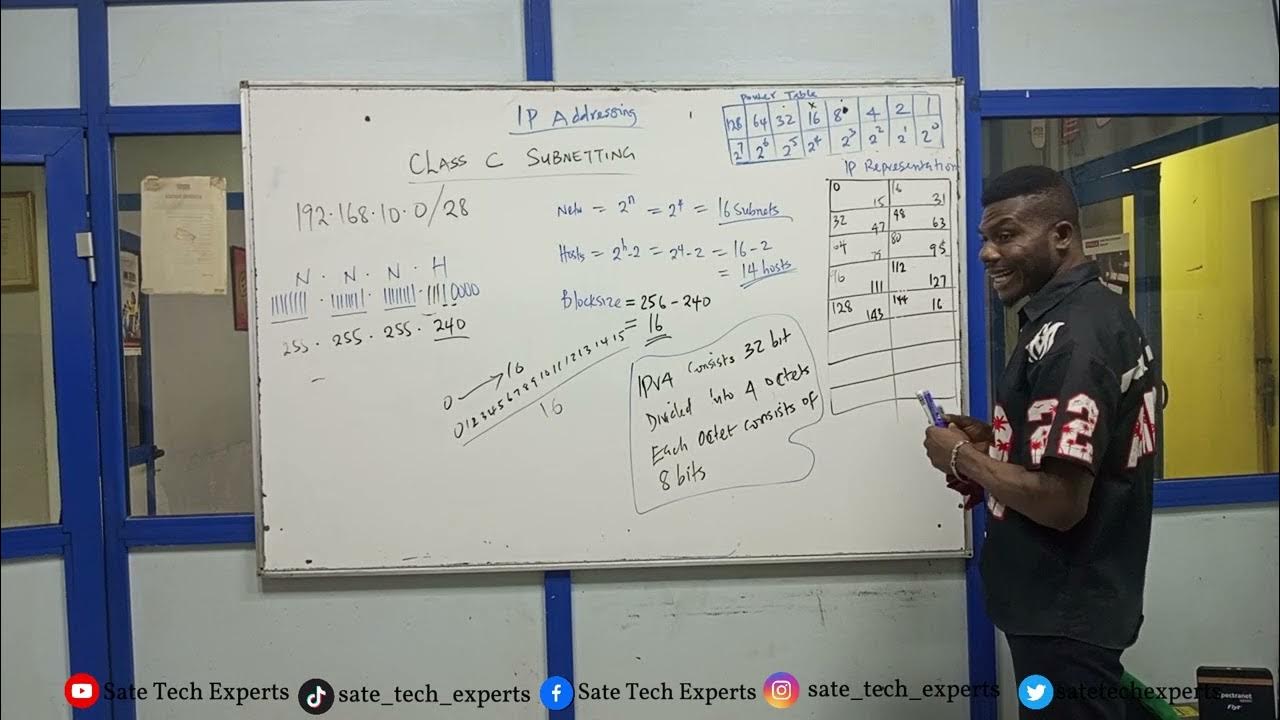 IP Addressing
CLASS C SUBNETTING
192.168.10.0/28
N . N . N . H
11111111 . 11111111 . 11111111 . 11110000
255 . 255 . 255 . 240
Netw = 2^n = 2^4 = 16 Subnets
Hosts = 2^h-2 = 2^4-2 = 16-2
= 14 hosts
Blocksize = 256 - 240
= 16
0 → 16
0 1 2 3 4 5 6 7 8 9 10 11 12 13 14 15
16
IPv4 Consists 32 bit
Divided into 4 octets
Each octet consists of
8 bits
power Table
128 64 32 16 8 4 2 1
2^7 2^6 2^5 2^4 2^3 2^2 2^1 2^0
IP Representation
0 15 16 31
32 47 48 63
80 95
111 112 127
128 143 144 16
Sate Tech Experts
sate_tech_experts
Sate Tech Experts
sate_tech_experts
satetechexperts